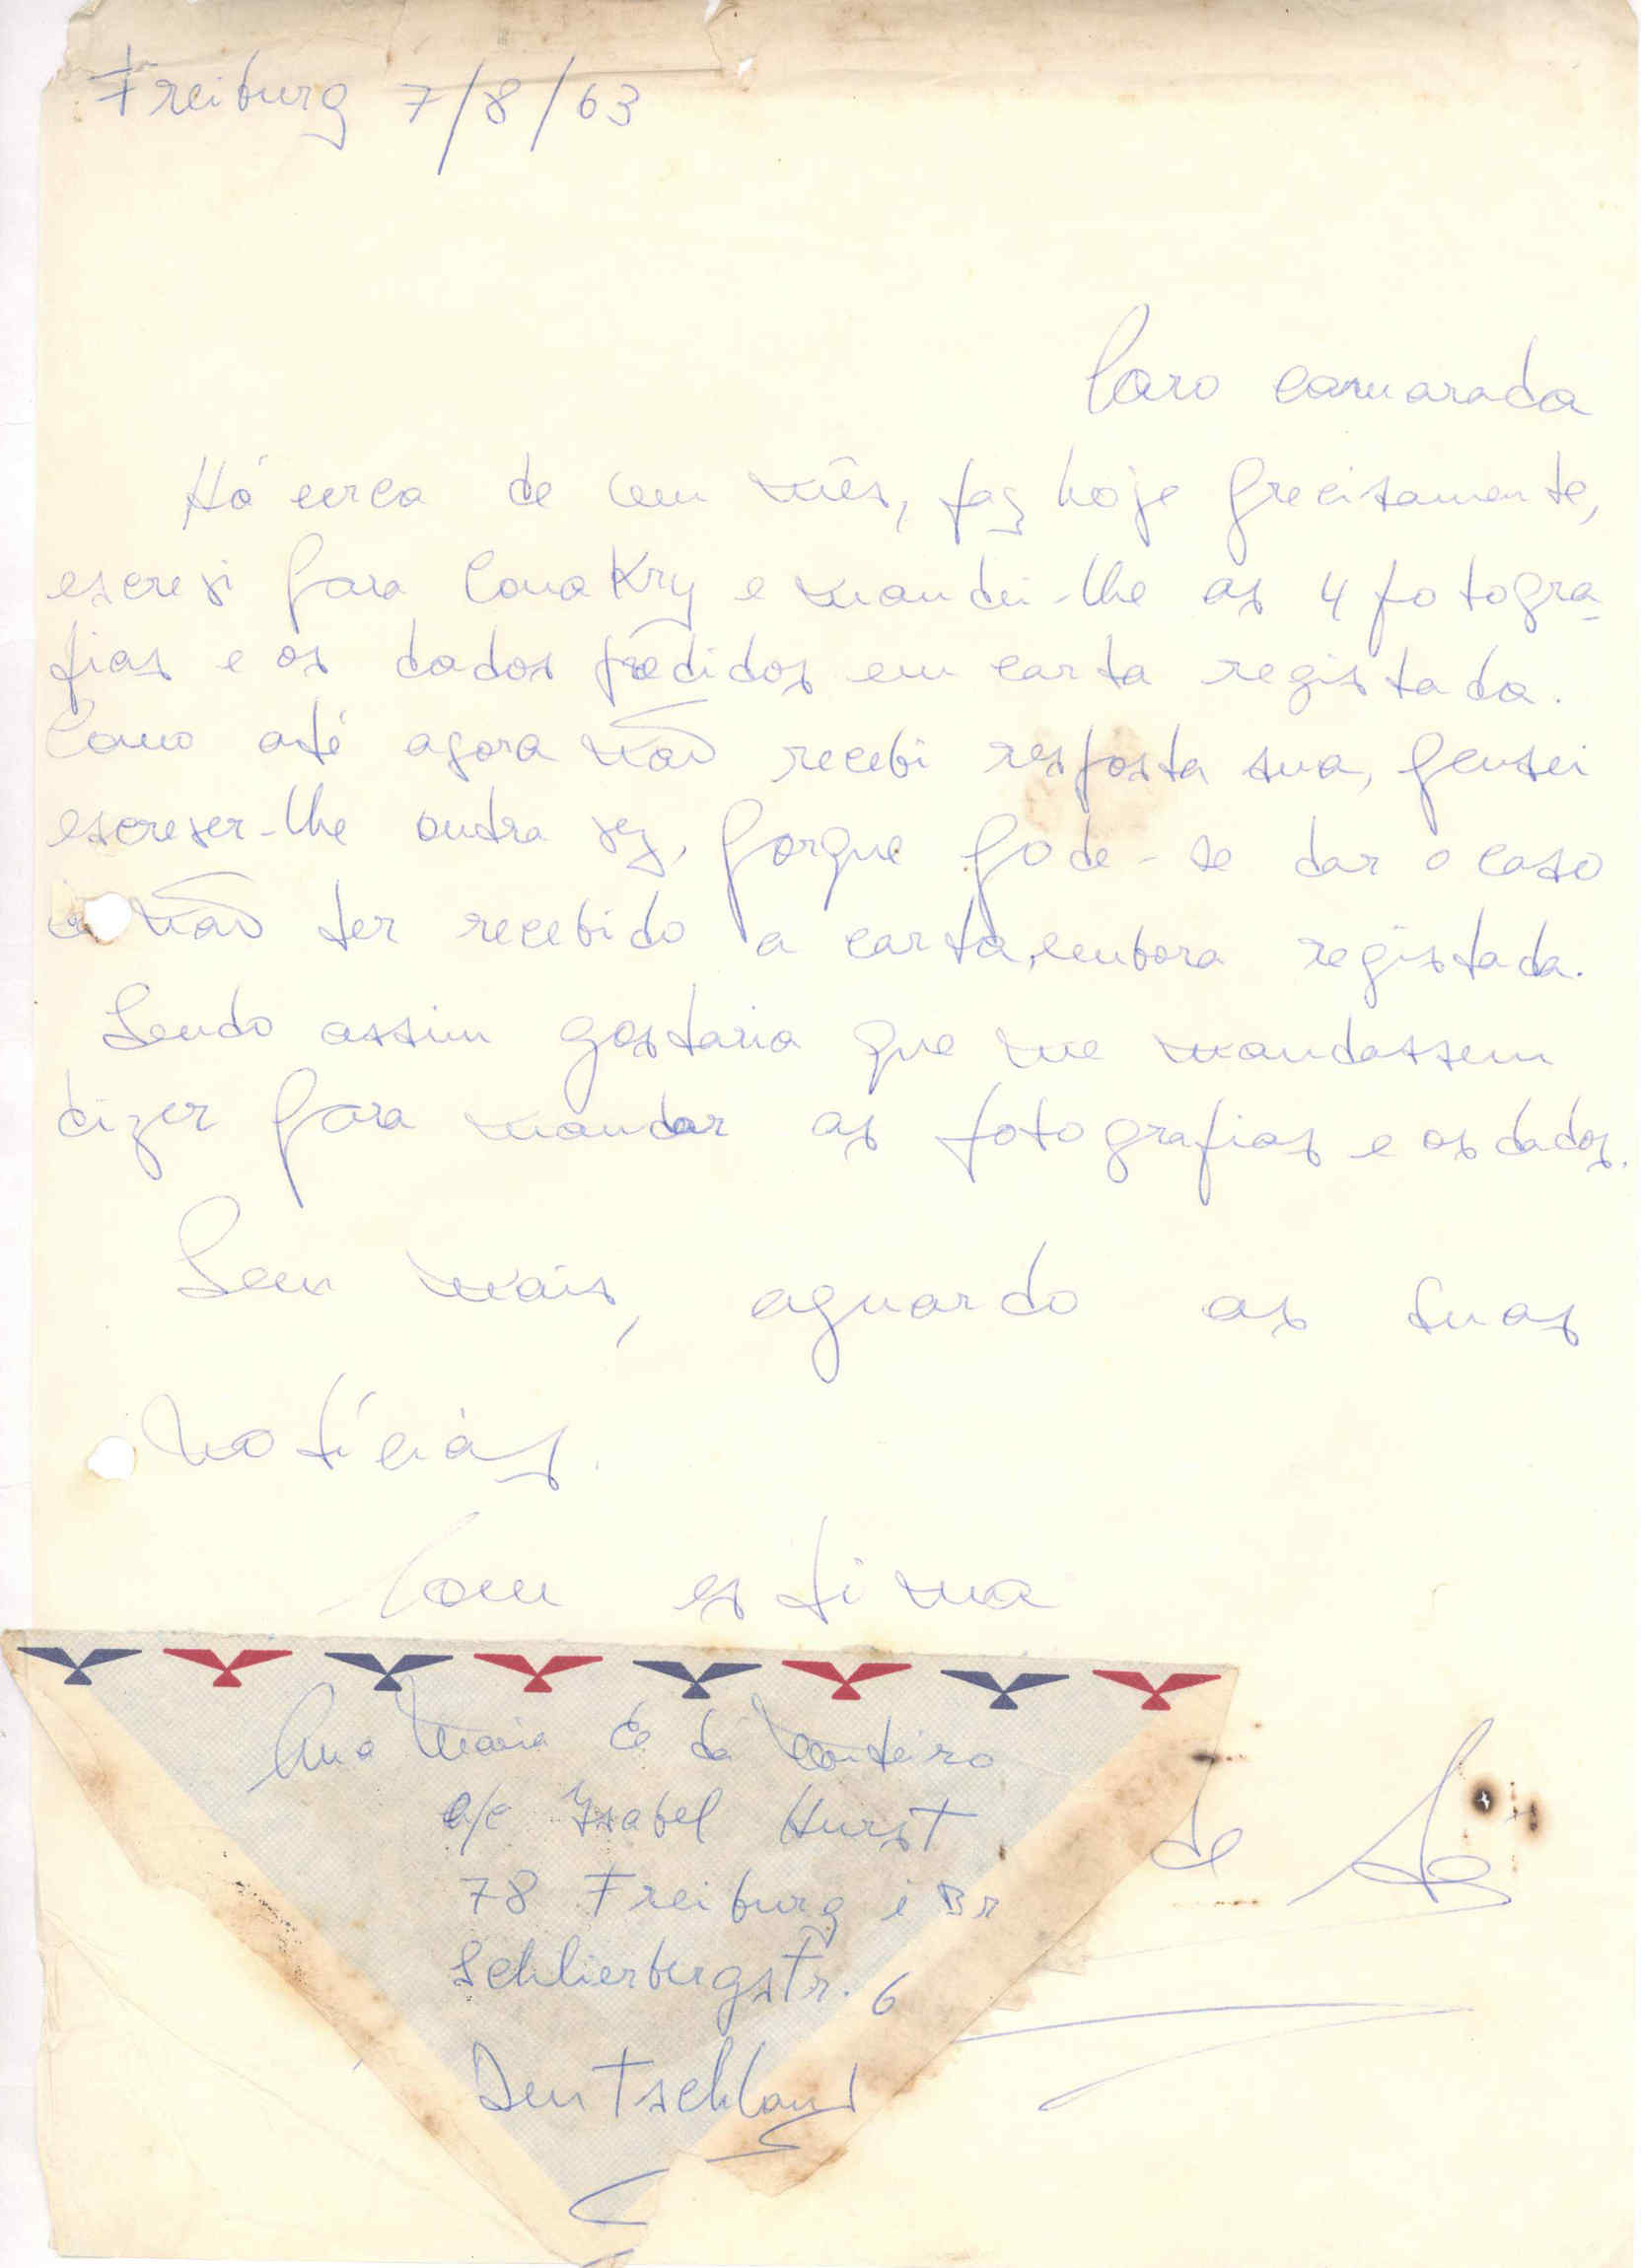 Freiburg 7/8/63
Caro camarada
Há cerca de um mês, faz hoje precisamente,
escrevi para Conakry e mandei-lhe as 4 fotogra-
fias e os dados pedidos em carta registada.
Como até agora não recebi resposta sua, pensei
escrever-lhe outra vez, porque pode-se dar o caso
não ter recebido a carta, embora registada.
Sendo assim gostaria que me mandassem
dizer para mandar as fotografias e os dados.
Sem mais, aguardo as suas
notícias.
Com estima
Ana Maria de Monteiro
a/c Isabel Hurst
78 Freiburg i Br
Schlierbergstr. 6
Deutschland
de Sá